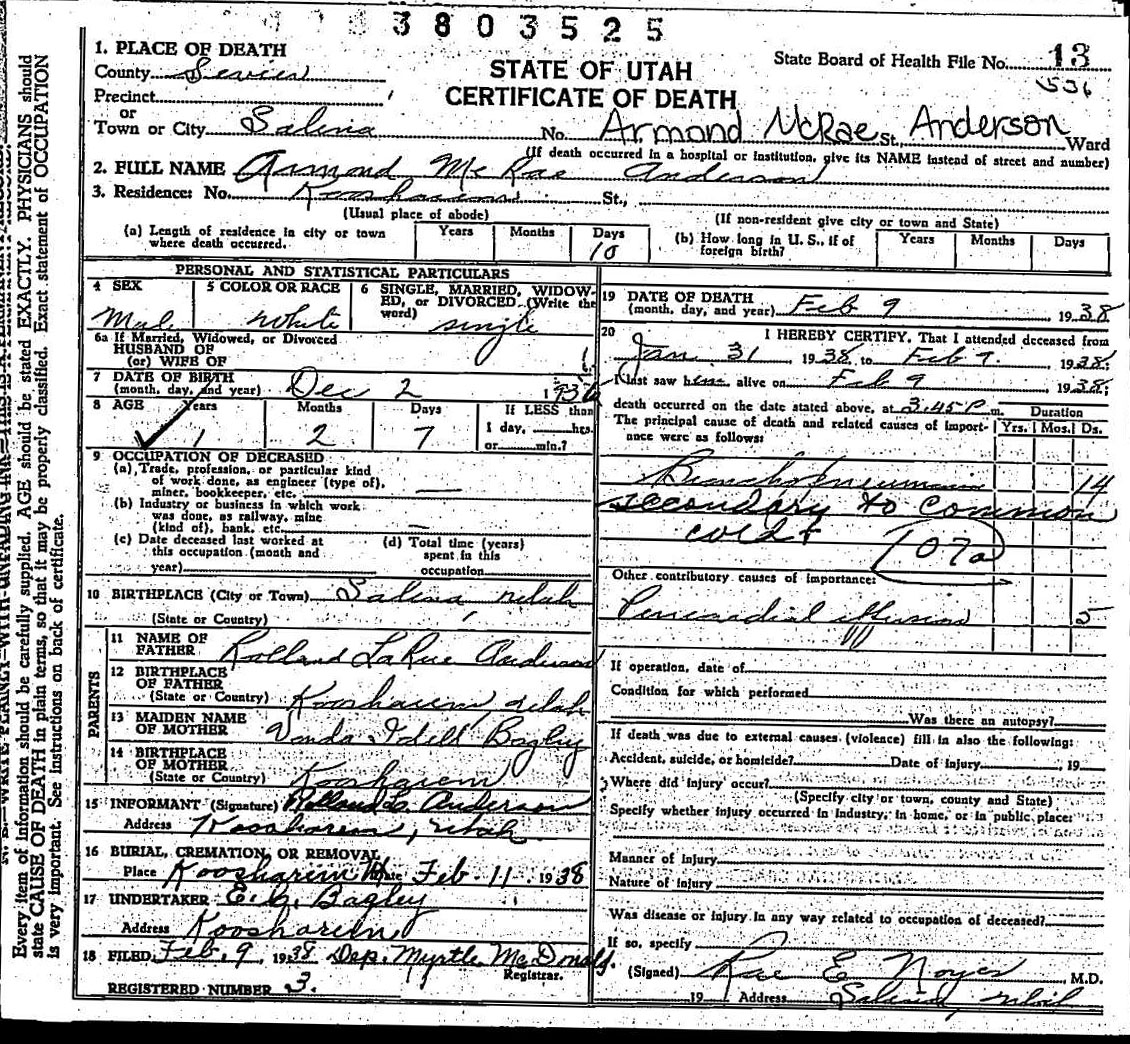 3803525
1. PLACE OF DEATH
County Sevier
STATE OF UTAH
State Board of Health File No. 13
536
Precinct
CERTIFICATE OF DEATH
or
Town or City Salina No. Armond McRae St., Anderson Ward
(If death occurred in a hospital or institution, give its NAME instead of street and number)
2. FULL NAME Armond McRae Anderson
3. Residence: No. Koosharem St.,
(Usual place of abode) (If non-resident give city or town and State)
(a) Length of residence in city or town where death occurred. Years Months Days 10
(b) How long in U. S., if of foreign birth? Years Months Days
PERSONAL AND STATISTICAL PARTICULARS
4 SEX 5 COLOR OR RACE 6 SINGLE, MARRIED, WIDOWED, or DIVORCED (Write the word)
Male White single
6a If Married, Widowed, or Divorced
HUSBAND OF
(or) WIFE OF
7 DATE OF BIRTH
(month, day, and year) Dec 2 1936
8 AGE Years Months Days If LESS than
1 2 7 1 day, hrs.
or min.?
9 OCCUPATION OF DECEASED
(a) Trade, profession, or particular kind
of work done, as engineer (type of),
miner, bookkeeper, etc. —
(b) Industry or business in which work
was done, as railway, mine
(kind of), bank, etc. —
(c) Date deceased last worked at
this occupation (month and
year)
(d) Total time (years)
spent in this
occupation
10 BIRTHPLACE (City or Town) Salina, Utah
(State or Country)
PARENTS
11 NAME OF
FATHER Rolland LaRue Anderson
12 BIRTHPLACE
OF FATHER
(State or Country) Koosharem, Utah
13 MAIDEN NAME
OF MOTHER Vonda Idell Bagley
14 BIRTHPLACE
OF MOTHER
(State or Country) Koosharem
15 INFORMANT (Signature) Rolland La Anderson
Address Koosharem, Utah
16 BURIAL, CREMATION, OR REMOVAL
Place Koosharem Date Feb. 11 1938
17 UNDERTAKER E. G. Bagley
Address Koosharem
18 FILED Feb. 9 1938 Dep. Myrtle McDonald.
Registrar.
REGISTERED NUMBER 3.
19 DATE OF DEATH
(month, day, and year) Feb 9 1938
20 I HEREBY CERTIFY, That I attended deceased from
Jan 31 1938 to Feb 9. 1938
I last saw him alive on Feb 9 1938
death occurred on the date stated above, at 3.45 P. m. Duration
The principal cause of death and related causes of importance were as follows: Yrs. Mos. Ds.
Bronchopneumonia 14
secondary to common
cold
107a
Other contributory causes of importance:
Pericardial effusion 5
If operation, date of
Condition for which performed
Was there an autopsy?
If death was due to external causes (violence) fill in also the following:
Accident, suicide, or homicide? Date of injury 19
Where did injury occur?
(Specify city or town, county and State)
Specify whether injury occurred in industry, in home, or in public place:
Manner of injury
Nature of injury
Was disease or injury in any way related to occupation of deceased?
If so, specify
(Signed) Rae E Noyes M.D.
19 Address Salina, Utah
Every item of information should be carefully supplied. AGE should be stated EXACTLY. PHYSICIANS should
state CAUSE OF DEATH in plain terms, so that it may be properly classified. Exact statement of OCCUPATION
is very important. See instructions on back of certificate.